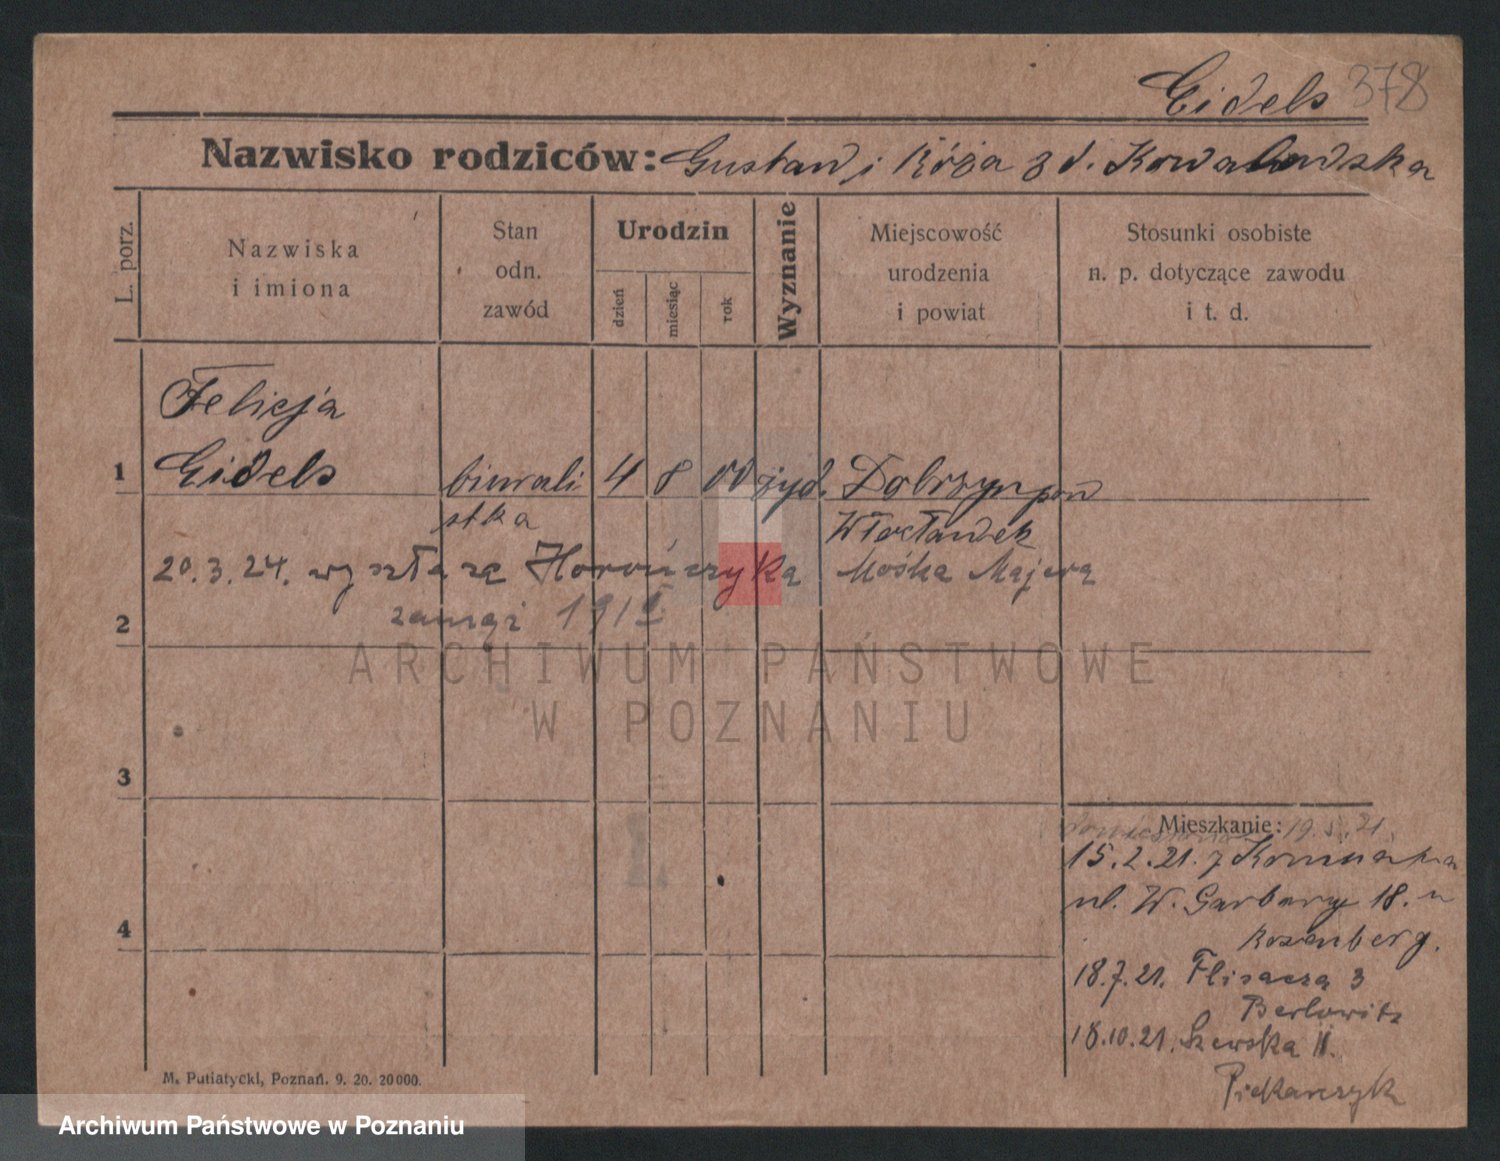 Eidels 378
Nazwisko rodziców: Gustaw i Róża z d. Kowalewska
L. porz.
Nazwiska
i imiona
Stan
odn.
zawód
Urodzin
dzień
miesiąc
rok
Wyznanie
Miejscowość
urodzenia
i powiat
Stosunki osobiste
n. p. dotyczące zawodu
i t. d.
Felicja
1 Eidels biurali 4 8 00 żyd. Dobrzyn pow
stka Włocławek
20.3.24. wyszła za Horończyka Mośka Majera
zamąż
2
ARCHIWUM PAŃSTWOWE
W POZNANIU
3
Mieszkanie: 19.5.21.
15.2.21. z
ul. W. Garbary 18. u
Rozenberg.
4
18.7.21. Flisacza 3
Berlowitz
18.10.21. Szewska 11.
Piekarczyk
M. Putiatycki, Poznań. 9. 20. 20 000.
Archiwum Państwowe w Poznaniu